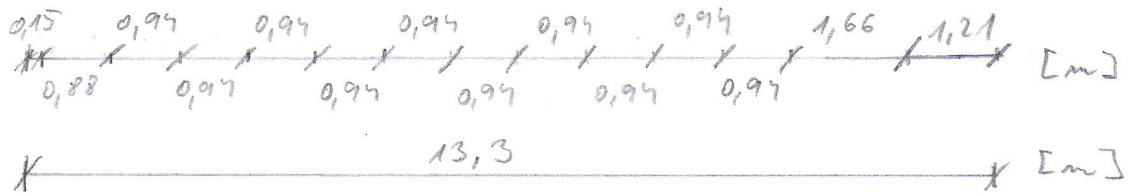 0,15 0,94 0,94 0,94 0,94 0,94 1,66 1,21
[m]
0,88 0,94 0,94 0,94 0,94 0,94
13,3 [m]